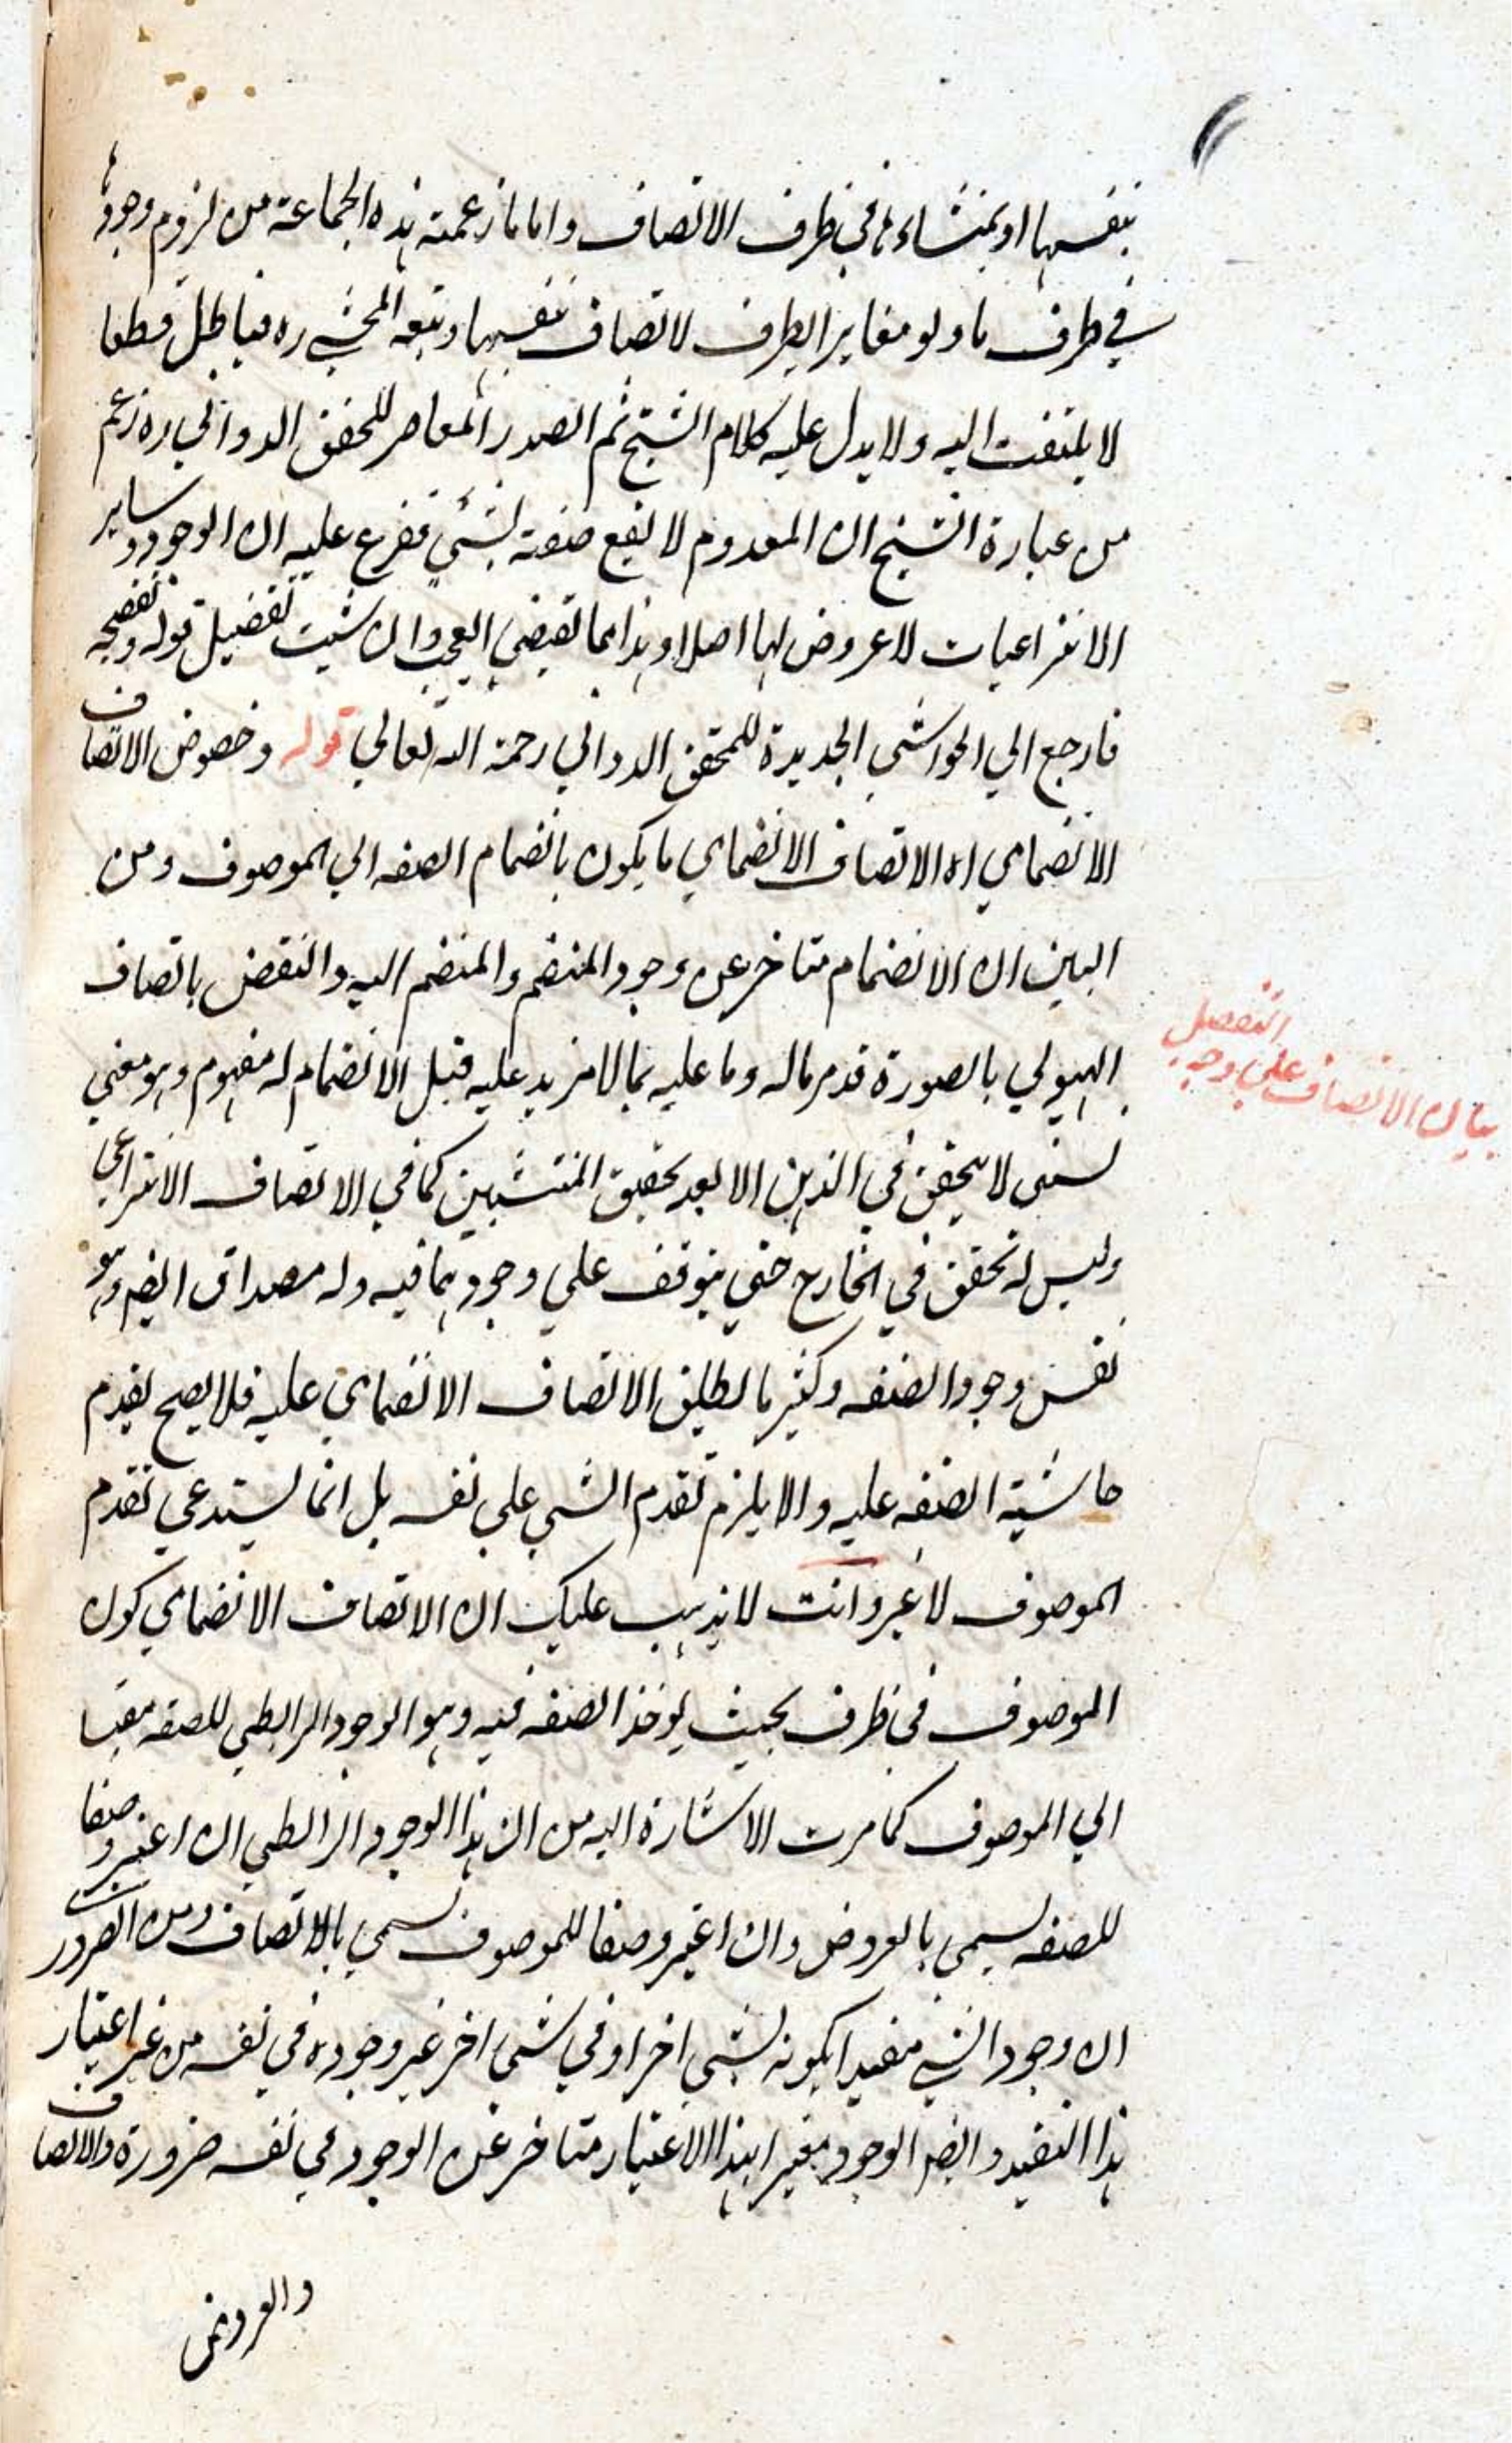 بنفسها او بمنشاءها في ظرف الاتصاف واما ما زعمته هذه الجماعة من لزوم وجودها
في ظرف ما ولو مغايرا لظرف الاتصاف بنفسها وتبعه المحشي ره فباطل قطعا
لا يلتفت اليه ولا يدل عليه كلام الشيخ ثم الصدر المعاصر للمحقق الدواني ره زعم
من عبارة الشيخ ان المعدوم لا يقع صفة لشيء ففرع عليه ان الوجود وساير
الانتزاعيات لا عروض لها اصلا وهذا مما يقضي العجب وان شيت تفضيل قوله وتفضيحه
فارجع الي الحواشي الجديدة للمحقق الدواني رحمة الله تعالي قوله وخصوص الاتصاف
الانضمامي اه الاتصاف الانضمامي ما يكون بانضمام الصفه الي الموصوف ومن
البين ان الانضمام متاخر عن وجود المنضم والمنضم اليه والنقض باتصاف
الهيولي بالصورة قد مر ماله وما عليه بما لا مزيد عليه قيل الانضمام له مفهوم وهو معني
نسبي لا يتحقق في الذهن الا بعد تحقق المنتسبين كما في الاتصاف الانتزاعي
وليس له تحقق في الخارج حتي يتوقف علي وجودهما فيه وله مصداق ايضا وهو
نفس وجود الصفه وكثيرا ما يطلق الاتصاف الانضمامي عليه فلا يصح تقدم
حاشية الصفه عليه والا يلزم تقدم الشي علي نفسه بل انما يستدعي تقدم
الموصوف لا غير وانت لا يذهب عليك ان الاتصاف الانضمامي كون
الموصوف في ظرف بحيث يوخذ الصفه فيه وهو الوجود الرابطي للصفه مقيسا
الي الموصوف كما مرت الاشارة اليه من ان هذا الوجود الرابطي ان اعتبر وصفا
للصفه يسمي بالعروض وان اعتبر وصفا للموصوف يسمي بالاتصاف ومن الضروري
ان وجود الشي مقيدا بكونه لشي اخر او في شي اخر غير وجوده في نفسه من غير اعتبار
هذا التقيد وايضا الوجود معتبرا بهذا الاعتبار متاخر عن الوجود في نفسه ضرورة والاتصاف
والعروض
بيان الاتصاف علي وجه
التفصيل